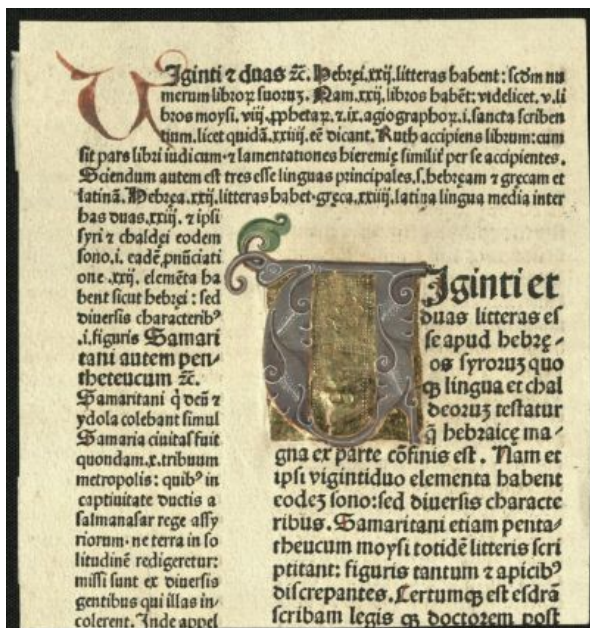 UIginti ⁊ duas ⁊c̄. Hebręi.xxij.litteras habent: scd̄m nu
merum libroꝝ suoruꝫ. Nam.xxij.libros habēt: videlicet.v.li
bros moysi. viij. ꝓphetaꝝ. ⁊.ix.agiographoꝝ.i.sancta scriben
tium.licet quidā.xxiiij.eē dicant. Ruth accipiens librum:cum
sit pars libri iudicum.⁊ lamentationes hieremię similiť per se accipientes.
Sciendum autem est tres esse linguas principales.s.hebręam ⁊ gręcam et
latinā. Hebręa.xxij.litteras habet.gręca.xxiiij.latina lingua media inter
has duas.xxiij. ⁊ ipsi
syri ⁊ chaldęi eodem
sono.i. eadē pnūciati
one .xxij. elemēta ha
bent sicut hebręi : sed
diuersis characterib⁹
.i.figuris Samari
tani autem pen⸗
theteucum ⁊c̄.
Samaritani q̇ deū ⁊
ydola colebant simul
Samaria ciuitas fuit
quondam.x.tribuum
metropolis : quib⁹ in
captiuitate ductis a
salmanasar rege assy
riorum. ne terra in so
litudinē redigeretur:
missi sunt ex diuersis
gentibus qui illas in⸗
colerent. Inde appel
UIginti et
duas litteras es
se apud hebrę⸗
os syroruꝫ quo
qꝫ lingua et chal
deoruꝫ testatur
q̄ hebraicę ma⸗
gna ex parte cōfinis est . Nam et
ipsi vigintiduo elementa habent
eodeꝫ sono:sed diuersis characte
ribus. Samaritani etiam penta⸗
theucum moysi totidē litteris scri
ptitant: figuris tantum ⁊ apicib⁹
discrepantes. Certumqꝫ est esdrā
scribam legis qꝫ doctorem post